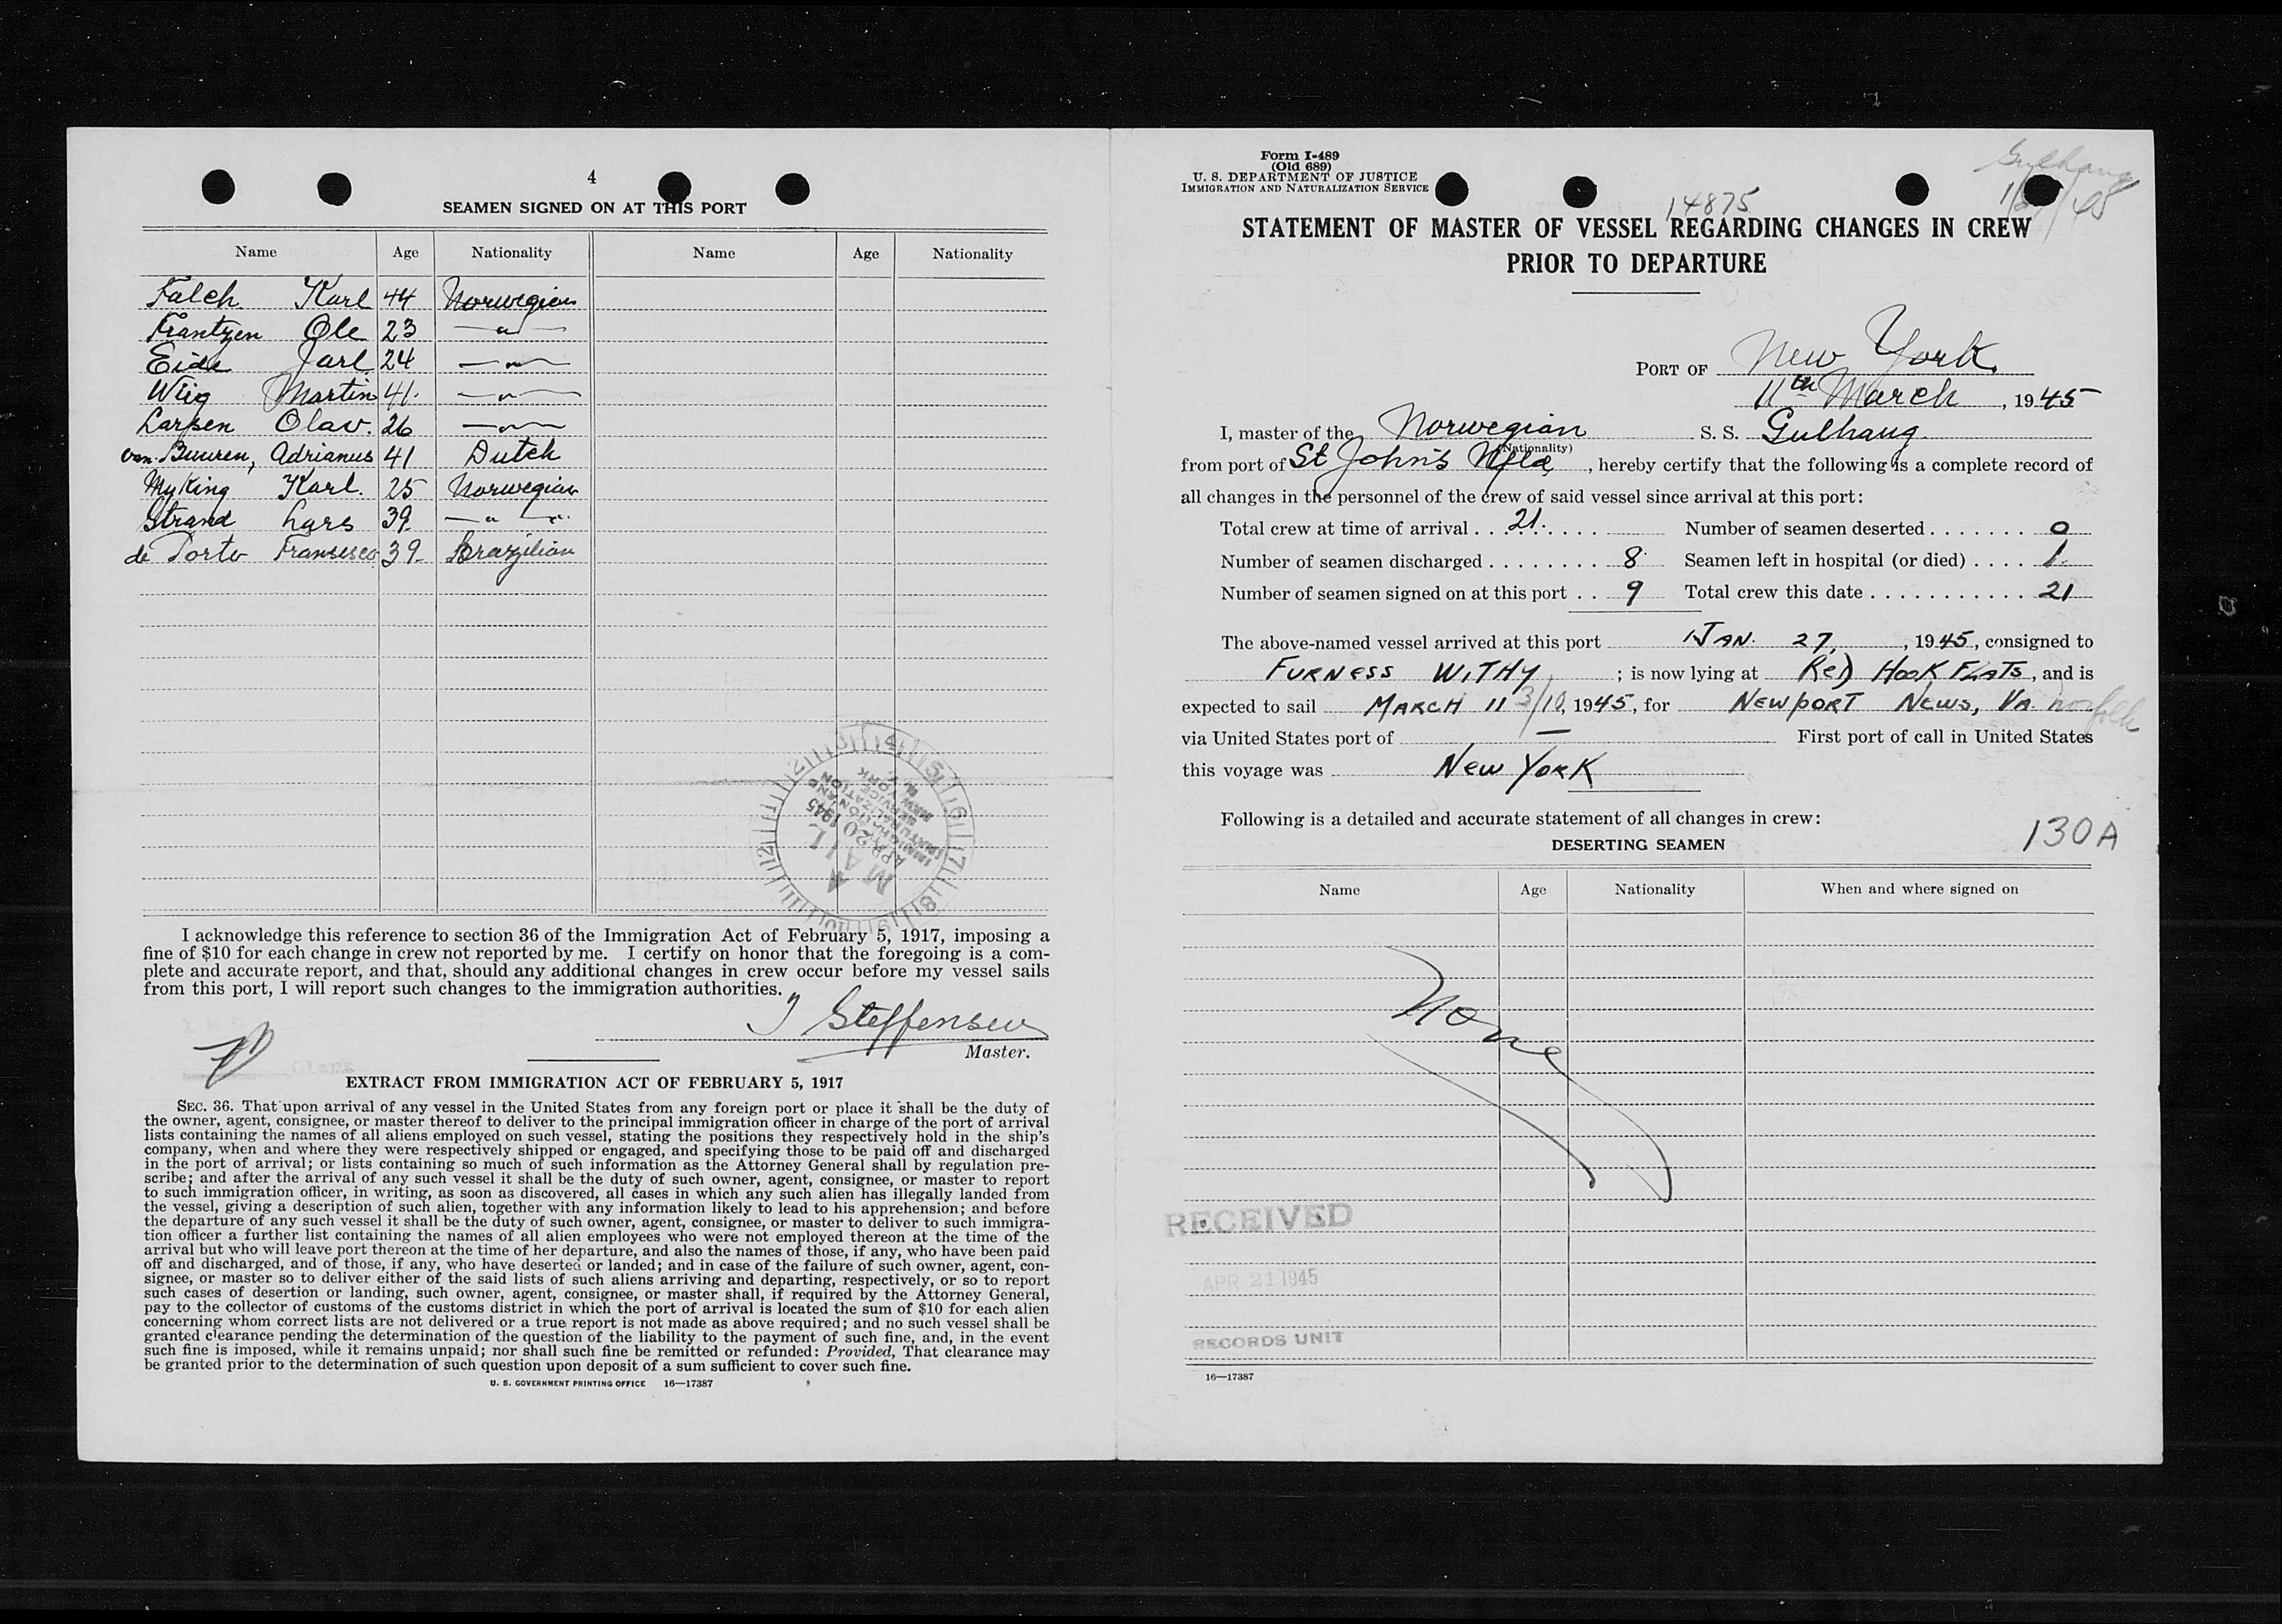 4
SEAMEN SIGNED ON AT THIS PORT
Name Age Nationality Name Age Nationality
Falch Karl 44 Norwegian
Frantzen Ole 23 —〃—
Eide Jarl 24 —〃—
Wiig Martin 41 —〃—
Larsen Olav. 26 —〃—
van Buuren, Adrianus 41 Dutch
Myking Karl. 25 Norwegian
Strand Lars 39 —〃—
de Porto Fransesco 39 Brazilian
I acknowledge this reference to section 36 of the Immigration Act of February 5, 1917, imposing a
fine of $10 for each change in crew not reported by me. I certify on honor that the foregoing is a com-
plete and accurate report, and that, should any additional changes in crew occur before my vessel sails
from this port, I will report such changes to the immigration authorities.
Steffensen
Master.
EXTRACT FROM IMMIGRATION ACT OF FEBRUARY 5, 1917
SEC. 36. That upon arrival of any vessel in the United States from any foreign port or place it shall be the duty of
the owner, agent, consignee, or master thereof to deliver to the principal immigration officer in charge of the port of arrival
lists containing the names of all aliens employed on such vessel, stating the positions they respectively hold in the ship's
company, when and where they were respectively shipped or engaged, and specifying those to be paid off and discharged
in the port of arrival; or lists containing so much of such information as the Attorney General shall by regulation pre-
scribe; and after the arrival of any such vessel it shall be the duty of such owner, agent, consignee, or master to report
to such immigration officer, in writing, as soon as discovered, all cases in which any such alien has illegally landed from
the vessel, giving a description of such alien, together with any information likely to lead to his apprehension; and before
the departure of any such vessel it shall be the duty of such owner, agent, consignee, or master to deliver to such immigra-
tion officer a further list containing the names of all alien employees who were not employed thereon at the time of the
arrival but who will leave port thereon at the time of her departure, and also the names of those, if any, who have been paid
off and discharged, and of those, if any, who have deserted or landed; and in case of the failure of such owner, agent, con-
signee, or master so to deliver either of the said lists of such aliens arriving and departing, respectively, or so to report
such cases of desertion or landing, such owner, agent, consignee, or master shall, if required by the Attorney General,
pay to the collector of customs of the customs district in which the port of arrival is located the sum of $10 for each alien
concerning whom correct lists are not delivered or a true report is not made as above required; and no such vessel shall be
granted clearance pending the determination of the question of the liability to the payment of such fine, and, in the event
such fine is imposed, while it remains unpaid; nor shall such fine be remitted or refunded: Provided, That clearance may
be granted prior to the determination of such question upon deposit of a sum sufficient to cover such fine.
U. S. GOVERNMENT PRINTING OFFICE 16—17387
MAIL
APR 20 1945
IMMIGRATION AND
NATURALIZATION
SERVICE
NEW YORK
Form I-489
(Old 689)
U. S. DEPARTMENT OF JUSTICE
IMMIGRATION AND NATURALIZATION SERVICE
Gulhaug
14875
STATEMENT OF MASTER OF VESSEL REGARDING CHANGES IN CREW
PRIOR TO DEPARTURE
PORT OF New York.
11th March, 1945
I, master of the Norwegian S. S. Gulhaug.
(Nationality)
from port of St John's Nfld, hereby certify that the following is a complete record of
all changes in the personnel of the crew of said vessel since arrival at this port:
Total crew at time of arrival . . 21. Number of seamen deserted . . . . . . . 0
Number of seamen discharged . . . . . . . . 8 Seamen left in hospital (or died) . . . . 1.
Number of seamen signed on at this port . . 9 Total crew this date . . . . . . . . . . . 21
The above-named vessel arrived at this port JAN. 27, 1945, consigned to
FURNESS WITHY; is now lying at RED HOOK FLATS, and is
expected to sail MARCH 11 3/10, 1945, for NEWPORT NEWS, VA. norfolk
via United States port of — First port of call in United States
this voyage was NEW YORK
Following is a detailed and accurate statement of all changes in crew:
130A
DESERTING SEAMEN
Name Age Nationality When and where signed on
None
RECEIVED
APR 21 1945
RECORDS UNIT
16—17387